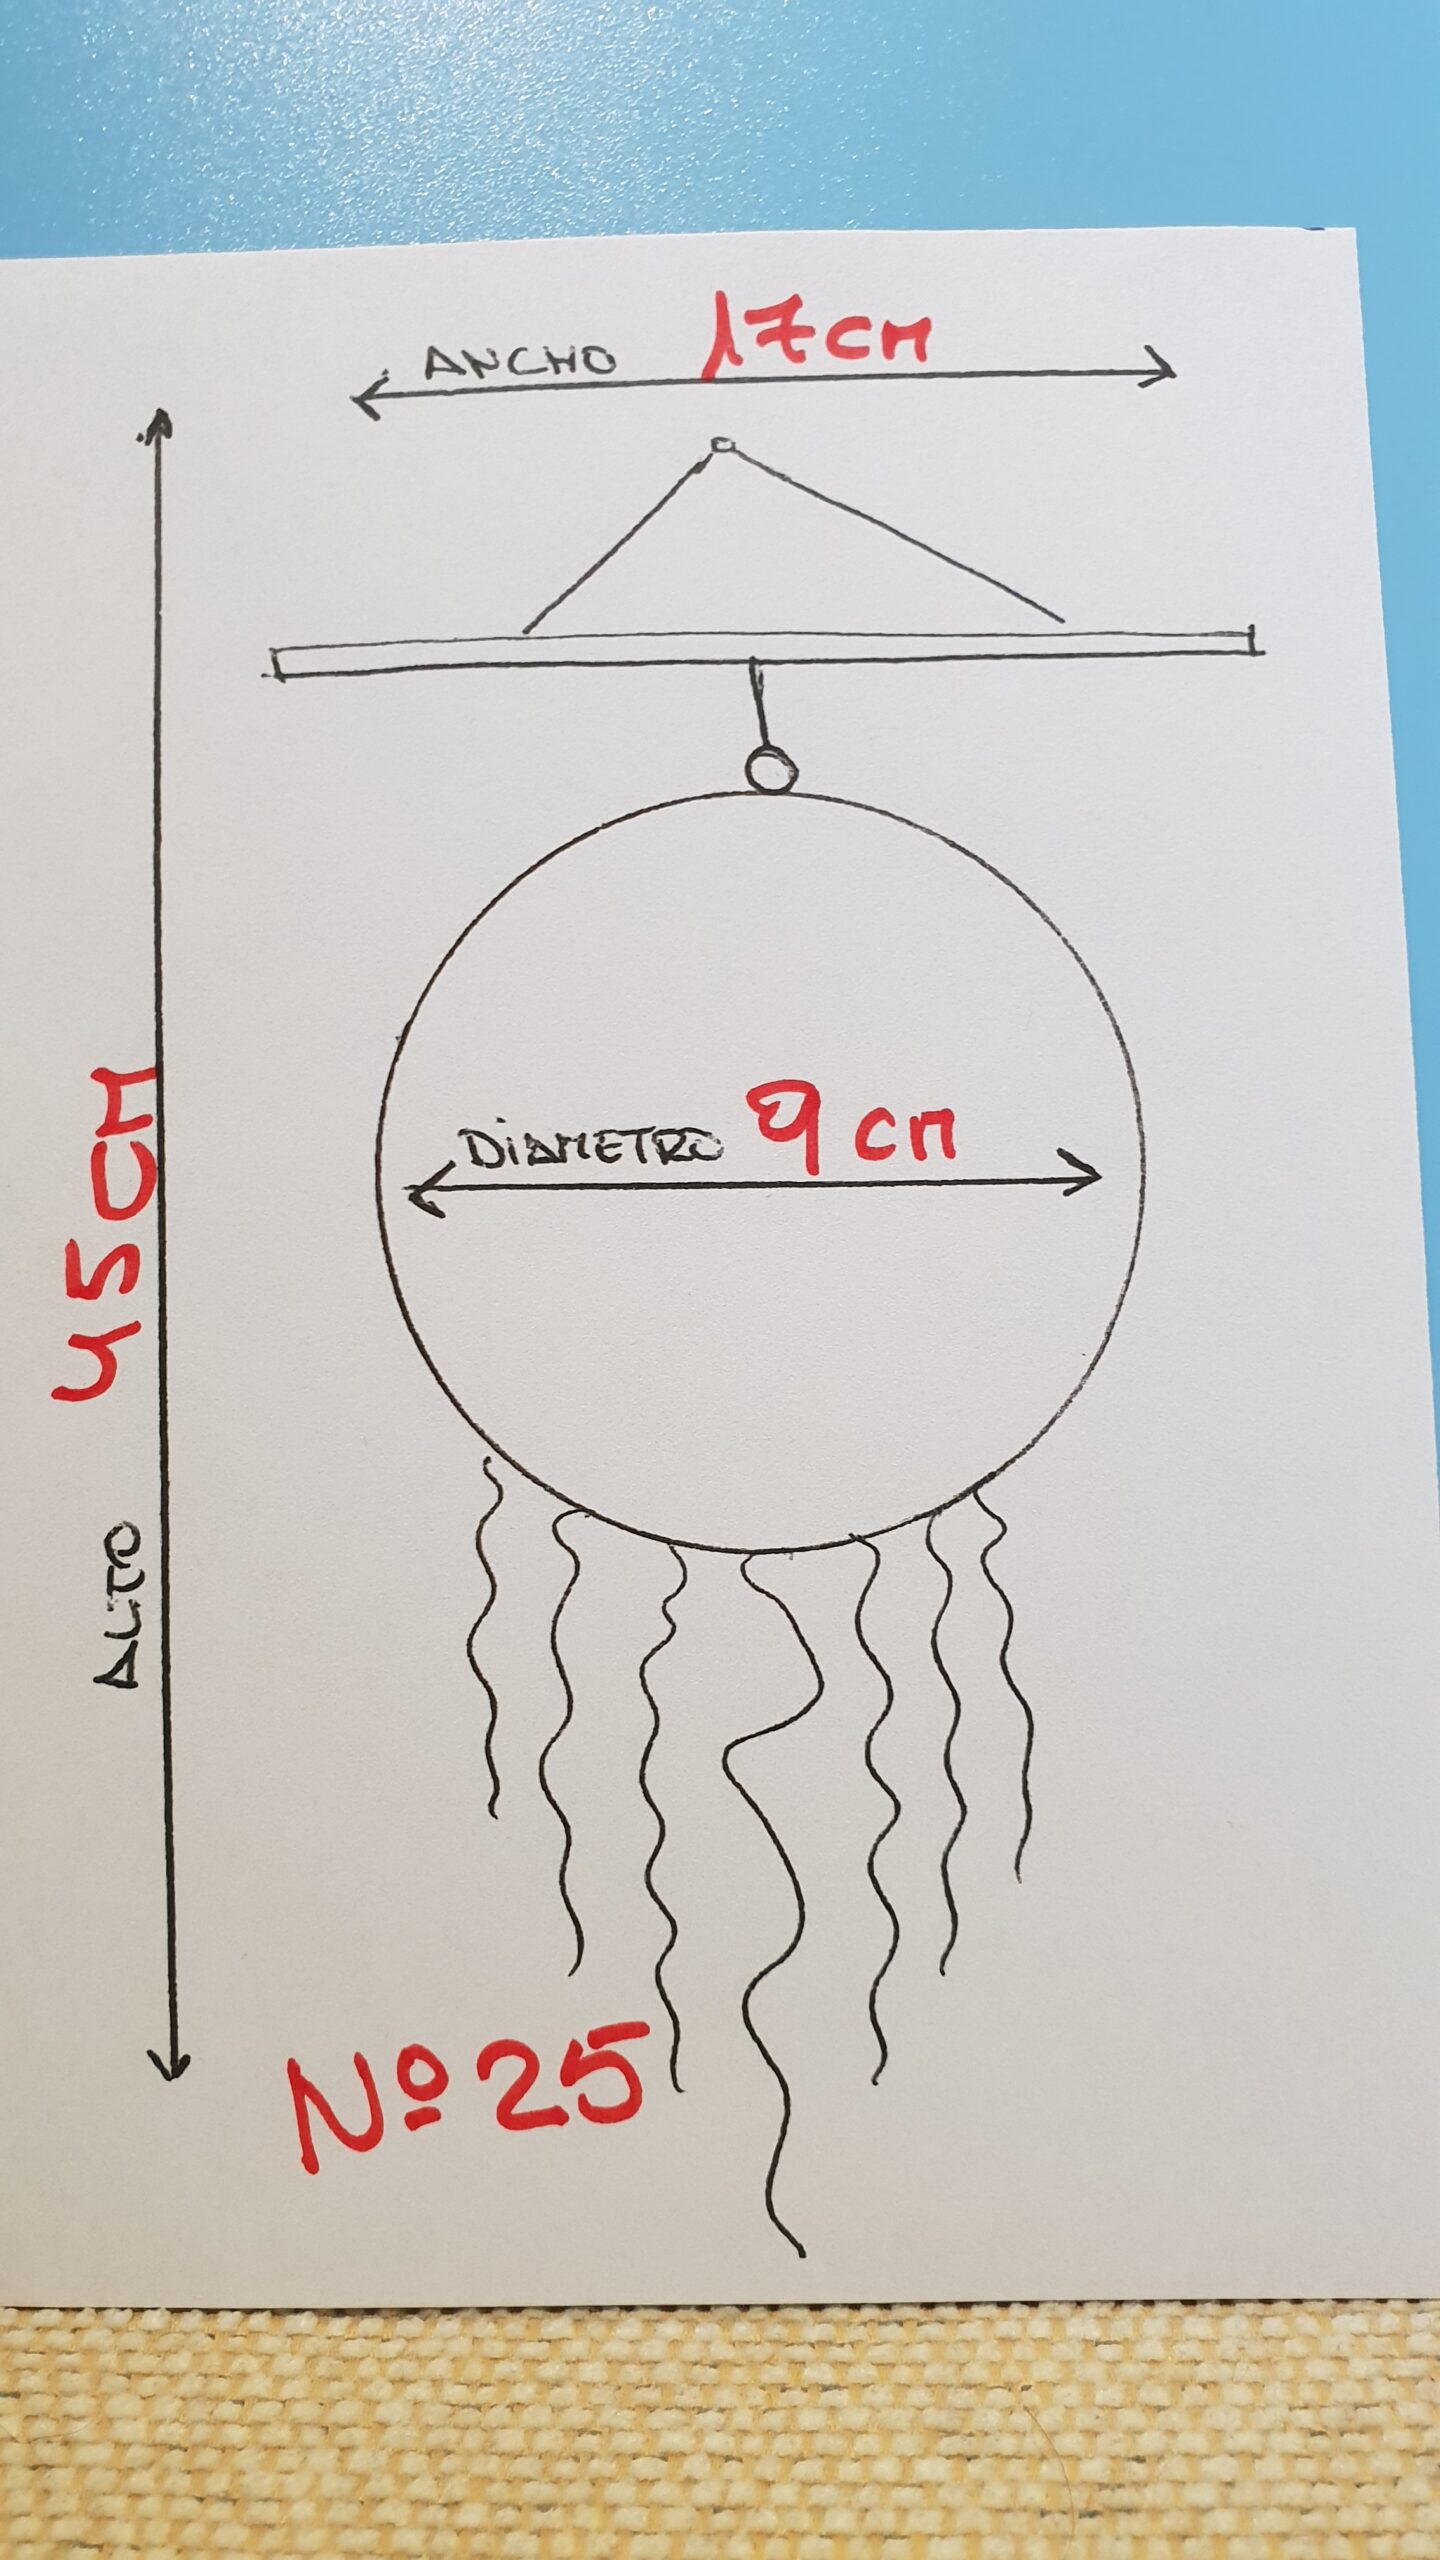 ANCHO 17CM
DIAMETRO 9 CM
ALTO 45CM
Nº 25